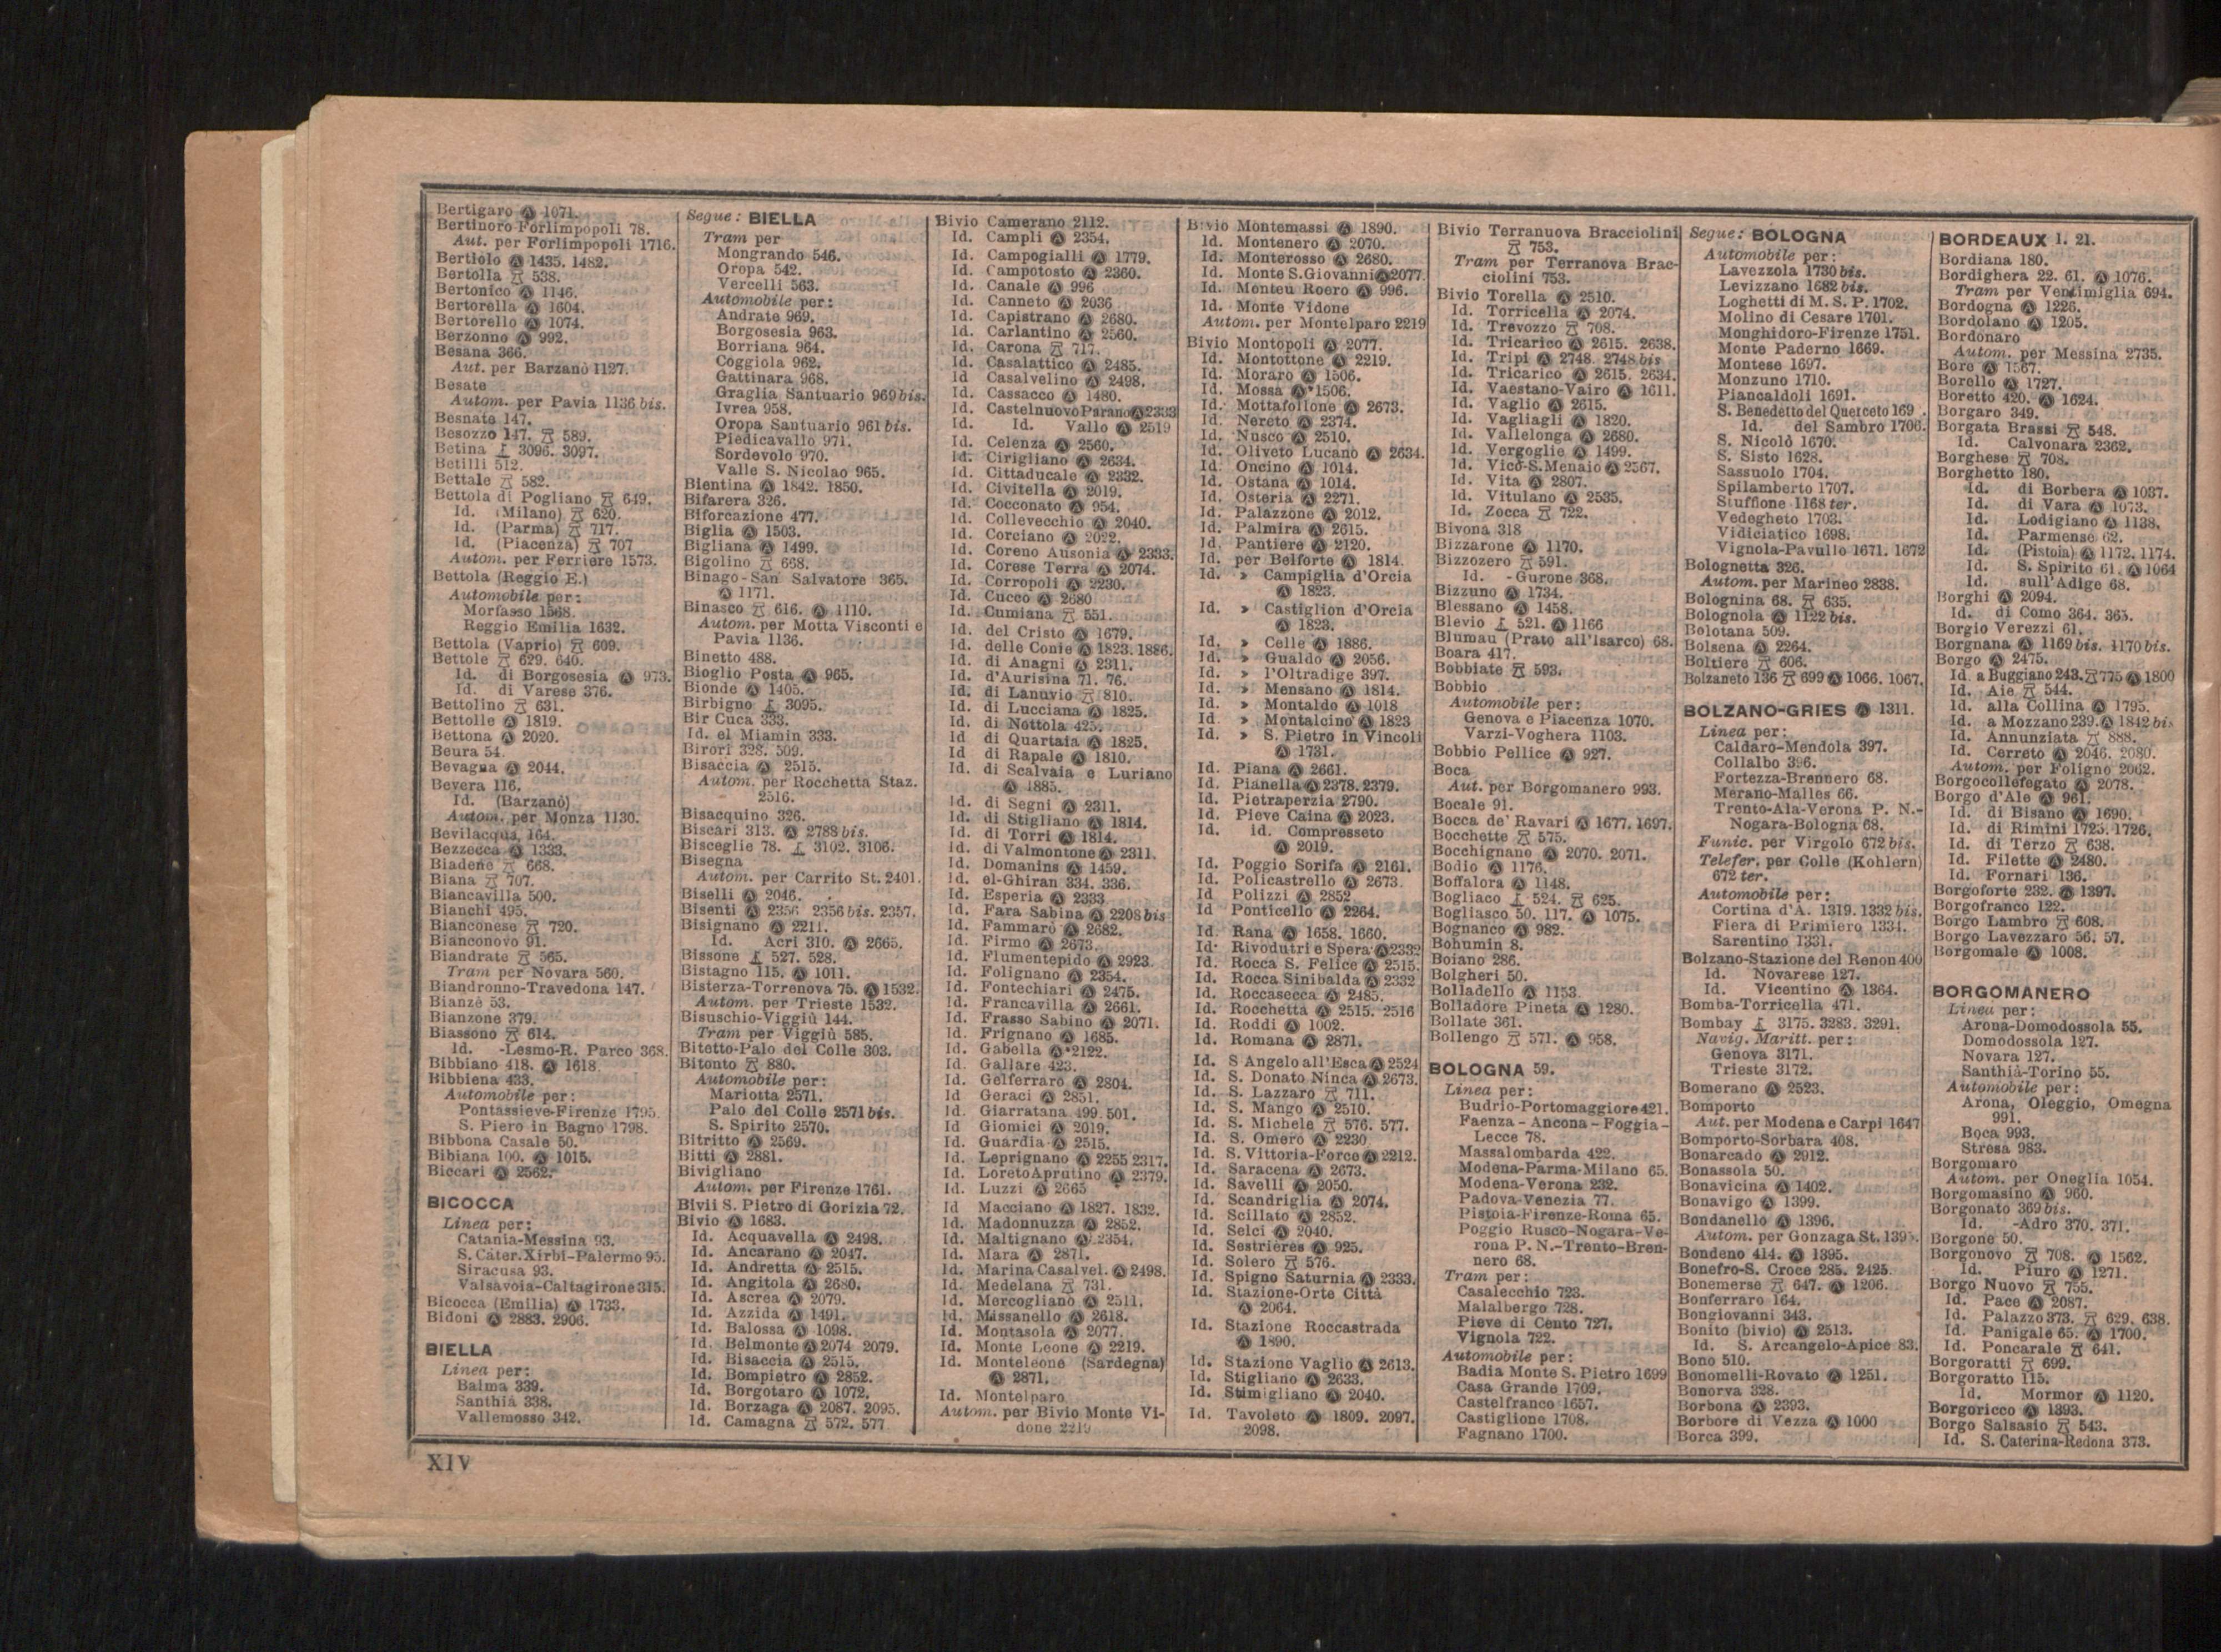 Bertigaro Ⓐ 1071.
Bertinoro Forlimpopoli 78.
Aut. per Forlimpopoli 1716.
Bertiolo Ⓐ 1435. 1482.
Bertolla 538.
Bertonico Ⓐ 1146.
Bertorella Ⓐ 1604.
Bertorello Ⓐ 1074.
Berzonno Ⓐ 992.
Besana 366.
Aut. per Barzanò 1127.
Besate
Autom. per Pavia 1136 bis.
Besnate 147.
Besozzo 147. 589.
Betina 3096. 3097.
Betilli 512.
Bettale 582.
Bettola di Pogliano 649.
Id. (Milano) 620.
Id. (Parma) 717.
Id. (Piacenza) 707
Autom. per Ferriere 1573.
Bettola (Reggio E.)
Automobile per:
Morfasso 1568.
Reggio Emilia 1632.
Bettola (Vaprio) 609.
Bettole 629. 640.
Id. di Borgosesia Ⓐ 973.
Id. di Varese 376.
Bettolino 631.
Bettolle Ⓐ 1819.
Bettona Ⓐ 2020.
Beura 54.
Bevagna Ⓐ 2044.
Bevera 116.
Id. (Barzanò)
Autom. per Monza 1130.
Bevilacqua, 164.
Bezzecca Ⓐ 1333.
Biadene 668.
Biana 707.
Biancavilla 500.
Bianchi 495.
Bianconese 720.
Bianconovo 91.
Biandrate 565.
Tram per Novara 560.
Biandronno-Travedona 147.
Bianzè 53.
Bianzone 379.
Biassono 614.
Id. -Lesmo-R. Parco 368.
Bibbiano 418. Ⓐ 1618.
Bibbiena 433.
Automobile per:
Pontassieve-Firenze 1795.
S. Piero in Bagno 1798.
Bibbona Casale 50.
Bibiana 100. Ⓐ 1015.
Biccari Ⓐ 2562.
BICOCCA
Linea per:
Catania-Messina 93.
S. Cater. Xirbi-Palermo 95.
Siracusa 93.
Valsavoia-Caltagirone 315.
Bicocca (Emilia) Ⓐ 1733.
Bidoni Ⓐ 2883. 2906.
BIELLA
Linea per:
Balma 339.
Santhià 338.
Vallemosso 342.
Segue: BIELLA
Tram per
Mongrando 546.
Oropa 542.
Vercelli 563.
Automobile per:
Andrate 969.
Borgosesia 963.
Borriana 964.
Coggiola 962.
Gattinara 968.
Graglia Santuario 969 bis.
Ivrea 958.
Oropa Santuario 961 bis.
Piedicavallo 971.
Sordevolo 970.
Valle S. Nicolao 965.
Bientina Ⓐ 1842. 1850.
Bifarera 326.
Biforcazione 477.
Biglia Ⓐ 1503.
Bigliana Ⓐ 1499.
Bigolino 668.
Binago-San Salvatore 365.
Ⓐ 1171.
Binasco 616. Ⓐ 1110.
Autom. per Motta Visconti e
Pavia 1136.
Binetto 488.
Bioglio Posta Ⓐ 965.
Bionde Ⓐ 1405.
Birbigno 3095.
Bir Cuca 333.
Id. el Miamin 333.
Birori 328. 509.
Bisaccia Ⓐ 2515.
Autom. per Rocchetta Staz.
2516.
Bisacquino 326.
Biscari 313. Ⓐ 2788 bis.
Bisceglie 78. 3102. 3106.
Bisegna
Autom. per Carrito St. 2401.
Biselli Ⓐ 2046.
Bisenti Ⓐ 2356 2356 bis. 2357.
Bisignano Ⓐ 2211.
Id. Acri 310. Ⓐ 2665.
Bissone 527. 528.
Bistagno 115. Ⓐ 1011.
Bisterza-Torrenova 75. Ⓐ 1532.
Autom. per Trieste 1532.
Bisuschio-Viggiù 144.
Tram per Viggiù 585.
Bitetto-Palo del Colle 303.
Bitonto 880.
Automobile per:
Mariotta 2571.
Palo del Colle 2571 bis.
S. Spirito 2570.
Bitritto Ⓐ 2569.
Bitti Ⓐ 2881.
Bivigliano
Autom. per Firenze 1761.
Bivii S. Pietro di Gorizia 72.
Bivio Ⓐ 1683.
Id. Acquavella Ⓐ 2498.
Id. Ancarano Ⓐ 2047.
Id. Andretta Ⓐ 2515.
Id. Angitola Ⓐ 2680.
Id. Ascrea Ⓐ 2079.
Id. Azzida Ⓐ 1491.
Id. Balossa Ⓐ 1098.
Id. Belmonte Ⓐ 2074 2079.
Id. Bisaccia Ⓐ 2515.
Id. Bompietro Ⓐ 2852.
Id. Borgotaro Ⓐ 1072.
Id. Borzaga Ⓐ 2087. 2095.
Id. Camagna 572. 577
Bivio Camerano 2112.
Id. Campli Ⓐ 2354.
Id. Campogialli Ⓐ 1779.
Id. Campotosto Ⓐ 2360.
Id. Canale Ⓐ 996
Id. Canneto Ⓐ 2036
Id. Capistrano Ⓐ 2680.
Id. Carlantino Ⓐ 2560.
Id. Carona 717.
Id. Casalattico Ⓐ 2485.
Id Casalvelino Ⓐ 2498.
Id. Cassacco Ⓐ 1480.
Id. Castelnuovo Parano Ⓐ 2333
Id. Id. Vallo Ⓐ 2519
Id. Celenza Ⓐ 2560.
Id. Cirigliano Ⓐ 2634.
Id. Cittaducale Ⓐ 2332.
Id. Civitella Ⓐ 2019.
Id. Cocconato Ⓐ 954.
Id. Collevecchio Ⓐ 2040.
Id. Corciano Ⓐ 2022.
Id. Coreno Ausonia Ⓐ 2333.
Id. Corese Terra Ⓐ 2074.
Id. Corropoli Ⓐ 2230.
Id. Cucco Ⓐ 2680
Id. Cumiana 551.
Id. del Cristo Ⓐ 1679.
Id. delle Conie Ⓐ 1823. 1886.
Id. di Anagni Ⓐ 2311.
Id. d'Aurisina 71. 76.
Id. di Lanuvio 810.
Id. di Lucciana Ⓐ 1825.
Id. di Nottola 425.
Id di Quartaia Ⓐ 1825.
Id di Rapale Ⓐ 1810.
Id. di Scalvaia e Luriano
Ⓐ 1885.
Id. di Segni Ⓐ 2311.
Id. di Stigliano Ⓐ 1814.
Id. di Torri Ⓐ 1814.
Id. di Valmontone Ⓐ 2311.
Id. Domanins Ⓐ 1459.
Id. el-Ghiran 334. 336.
Id. Esperia Ⓐ 2333
Id. Fara Sabina Ⓐ 2208 bis
Id. Fammaro Ⓐ 2682.
Id. Firmo Ⓐ 2673.
Id. Flumentepido Ⓐ 2923
Id. Folignano Ⓐ 2354.
Id. Fontechiari Ⓐ 2475.
Id. Francavilla Ⓐ 2661.
Id. Frasso Sabino Ⓐ 2071.
Id. Frignano Ⓐ 1685.
Id. Gabella Ⓐ 2122.
Id. Gallare 423.
Id Gelferraro Ⓐ 2804.
Id Geraci Ⓐ 2851.
Id. Giarratana 499. 501.
Id Giomici Ⓐ 2019.
Id. Guardia Ⓐ 2515.
Id. Leprignano Ⓐ 2255 2317.
Id. Loreto Aprutino Ⓐ 2379.
Id. Luzzi Ⓐ 2665
Id Macciano Ⓐ 1827. 1832.
Id. Madonnuzza Ⓐ 2852.
Id. Maltignano Ⓐ 2354.
Id. Mara Ⓐ 2871.
Id. Marina Casalvel. Ⓐ 2498.
Id. Medelana 731.
Id. Mercogliano Ⓐ 2511.
Id. Missanello Ⓐ 2618.
Id. Montasola Ⓐ 2077.
Id. Monte Leone Ⓐ 2219.
Id. Monteleone (Sardegna)
Ⓐ 2871.
Id. Montelparo
Autom. per Bivio Monte Vi-
done 2219
Bivio Montemassi Ⓐ 1890.
Id. Montenero Ⓐ 2070.
Id. Monterosso Ⓐ 2680.
Id. Monte S. Giovanni Ⓐ 2077
Id. Monteu Roero Ⓐ 996.
Id. Monte Vidone
Autom. per Montelparo 2219
Bivio Montopoli Ⓐ 2077.
Id. Montottone Ⓐ 2219.
Id. Moraro Ⓐ 1506.
Id. Mossa Ⓐ 1506.
Id. Mottafollone Ⓐ 2673.
Id. Nereto Ⓐ 2374.
Id. Nusco Ⓐ 2510.
Id. Oliveto Lucano Ⓐ 2634.
Id. Oncino Ⓐ 1014.
Id. Ostana Ⓐ 1014.
Id. Osteria Ⓐ 2271.
Id. Palazzone Ⓐ 2012.
Id. Palmira Ⓐ 2615.
Id. Pantiere Ⓐ 2120.
Id. per Belforte Ⓐ 1814.
Id. » Campiglia d'Orcia
Ⓐ 1823.
Id. » Castiglion d'Orcia
Ⓐ 1823.
Id. » Celle Ⓐ 1886.
Id. » Gualdo Ⓐ 2056.
Id. » l'Oltradige 397.
Id. » Mensano Ⓐ 1814.
Id. » Montaldo Ⓐ 1018
Id. » Montalcino Ⓐ 1823
Id. » S. Pietro in Vincoli
Ⓐ 1731.
Id. Piana Ⓐ 2661.
Id. Pianella Ⓐ 2378. 2379.
Id. Pietraperzia 2790.
Id. Pieve Caina Ⓐ 2023.
Id. id. Compresseto
Ⓐ 2019.
Id. Poggio Sorifa Ⓐ 2161.
Id. Policastrello Ⓐ 2673
Id Polizzi Ⓐ 2852
Id Ponticello Ⓐ 2264.
Id. Rana Ⓐ 1658. 1660.
Id. Rivodutri e Spera Ⓐ 2332
Id. Rocca S. Felice Ⓐ 2515.
Id. Rocca Sinibalda Ⓐ 2332
Id. Roccasecca Ⓐ 2485.
Id. Rocchetta Ⓐ 2515. 2516
Id. Roddi Ⓐ 1002.
Id. Romana Ⓐ 2871.
Id. S Angelo all'Esca Ⓐ 2524
Id. S. Donato Ninea Ⓐ 2673.
Id. S. Lazzaro 711.
Id. S. Mango Ⓐ 2510.
Id. S. Michele 576. 577.
Id. S. Omero Ⓐ 2230
Id. S. Vittoria-Force Ⓐ 2212.
Id. Saracena Ⓐ 2673.
Id. Savelli Ⓐ 2050.
Id. Scandriglia Ⓐ 2074.
Id. Scillato Ⓐ 2852.
Id. Selci Ⓐ 2040.
Id. Sestrières Ⓐ 925.
Id. Solero 576.
Id. Spigno Saturnia Ⓐ 2333.
Id. Stazione-Orte Città
Ⓐ 2064.
Id. Stazione Roccastrada
Ⓐ 1890.
Id. Stazione Vaglio Ⓐ 2613.
Id. Stigliano Ⓐ 2633.
Id. Stimigliano Ⓐ 2040.
Id. Tavoleto Ⓐ 1809. 2097.
2098.
Bivio Terranuova Bracciolini
753.
Tram per Terranova Brac-
ciolini 753.
Bivio Torella Ⓐ 2510.
Id. Torricella Ⓐ 2074.
Id. Trevozzo 708.
Id. Tricarico Ⓐ 2615. 2638.
Id. Tripi Ⓐ 2748. 2748 bis
Id. Tricarico Ⓐ 2615. 2634.
Id. Vaestano-Vairo Ⓐ 1611.
Id. Vaglio Ⓐ 2615.
Id. Vagliagli Ⓐ 1820.
Id. Vallelonga Ⓐ 2680.
Id. Vergoglie Ⓐ 1499.
Id. Vico-S. Menaio Ⓐ 2567.
Id. Vita Ⓐ 2807.
Id. Vitulano Ⓐ 2535.
Id. Zocca 722.
Bivona 318
Bizzarone Ⓐ 1170.
Bizzozero 591.
Id. -Gurone 368.
Bizzuno Ⓐ 1734.
Blessano Ⓐ 1458.
Blevio 521. Ⓐ 1166
Blumau (Prato all'Isarco) 68.
Boara 417.
Bobbiate 593.
Bobbio
Automobile per:
Genova e Piacenza 1070.
Varzi-Voghera 1103.
Bobbio Pellice Ⓐ 927.
Boca
Aut. per Borgomanero 993.
Bocale 91.
Bocca de' Ravari Ⓐ 1677. 1697.
Bocchette 575.
Bocchignano Ⓐ 2070. 2071.
Bodio Ⓐ 1176.
Boffalora Ⓐ 1148.
Bogliaco 524. 625.
Bogliasco 50. 117. Ⓐ 1075.
Bognanco Ⓐ 982.
Bohumin 8.
Boiano 286.
Bolgheri 50.
Bolladello Ⓐ 1153
Bolladore Pineta Ⓐ 1280.
Bollate 361.
Bollengo 571. Ⓐ 958.
BOLOGNA 59.
Linea per:
Budrio-Portomaggiore 421.
Faenza - Ancona - Foggia -
Lecce 78.
Massalombarda 422.
Modena-Parma-Milano 65.
Modena-Verona 232.
Padova-Venezia 77.
Pistoia-Firenze-Roma 65.
Poggio Rusco-Nogara-Ve-
rona P. N.-Trento-Bren-
nero 68.
Tram per:
Casalecchio 723.
Malalbergo 728.
Pieve di Cento 727.
Vignola 722.
Automobile per:
Badia Monte S. Pietro 1699
Casa Grande 1709.
Castelfranco 1657.
Castiglione 1708.
Fagnano 1700.
Segue: BOLOGNA
Automobile per:
Lavezzola 1730 bis.
Levizzano 1682 bis.
Loghetti di M. S. P. 1702.
Molino di Cesare 1701.
Monghidoro-Firenze 1751.
Monte Paderno 1669.
Montese 1697.
Monzuno 1710.
Piancaldoli 1691.
S. Benedetto del Querceto 169
Id. del Sambro 1706.
S. Nicolò 1670.
S. Sisto 1628.
Sassuolo 1704.
Spilamberto 1707.
Stuffione 1168 ter.
Vedegheto 1703.
Vidiciatico 1698.
Vignola-Pavullo 1671. 1672
Bolognetta 326.
Autom. per Marineo 2838.
Bolognina 68. 635.
Bolognola Ⓐ 1122 bis.
Bolotana 509.
Bolsena Ⓐ 2264.
Boltiere 606.
Bolzaneto 136 699 Ⓐ 1066. 1067.
BOLZANO-GRIES Ⓐ 1311.
Linea per:
Caldaro-Mendola 397.
Collalbo 396.
Fortezza-Brennero 68.
Merano-Malles 66.
Trento-Ala-Verona P. N.-
Nogara-Bologna 68.
Funic. per Virgolo 672 bis.
Telefer. per Colle (Kohlern)
672 ter.
Automobile per:
Cortina d'A. 1319. 1332 bis.
Fiera di Primiero 1334.
Sarentino 1331.
Bolzano-Stazione del Renon 400
Id. Novarese 127.
Id. Vicentino Ⓐ 1364.
Bomba-Torricella 471.
Bombay 3175. 3283. 3291.
Navig. Maritt. per:
Genova 3171.
Trieste 3172.
Bomerano Ⓐ 2523.
Bomporto
Aut. per Modena e Carpi 1647
Bomporto-Sorbara 408.
Bonarcado Ⓐ 2912.
Bonassola 50.
Bonavicina Ⓐ 1402.
Bonavigo Ⓐ 1399.
Bondanello Ⓐ 1396.
Autom. per Gonzaga St. 139
Bondeno 414. Ⓐ 1395.
Bonefro-S. Croce 285. 2425.
Bonemerse 647. Ⓐ 1206.
Bonferraro 164.
Bongiovanni 343.
Bonito (bivio) Ⓐ 2513.
Id. S. Arcangelo-Apice 83.
Bono 510.
Bonomelli-Rovato Ⓐ 1251.
Bonorva 328.
Borbona Ⓐ 2393.
Borbore di Vezza Ⓐ 1000
Borca 399.
BORDEAUX 1. 21.
Bordiana 180.
Bordighera 22. 61. Ⓐ 1076.
Tram per Ventimiglia 694.
Bordogna Ⓐ 1226.
Bordolano Ⓐ 1205.
Bordonaro
Autom. per Messina 2735.
Bore Ⓐ 1567.
Borello Ⓐ 1727.
Boretto 420. Ⓐ 1624.
Borgaro 349.
Borgata Brassi 548.
Id. Calvonara 2362.
Borghese 708.
Borghetto 180.
Id. di Borbera Ⓐ 1037.
Id. di Vara Ⓐ 1073.
Id. Lodigiano Ⓐ 1138.
Id. Parmense 62.
Id. (Pistoia) Ⓐ 1172. 1174.
Id. S. Spirito 61. Ⓐ 1064
Id. sull'Adige 68.
Borghi Ⓐ 2094.
Id. di Como 364. 365.
Borgio Verezzi 61.
Borgnana Ⓐ 1169 bis. 1170 bis.
Borgo Ⓐ 2475.
Id. a Buggiano 243. 775 Ⓐ 1800
Id. Aie 544.
Id. alla Collina Ⓐ 1795.
Id. a Mozzano 239. Ⓐ 1842 bis
Id. Annunziata 888.
Id. Cerreto Ⓐ 2046. 2080.
Autom. per Foligno 2062.
Borgocollefegato Ⓐ 2078.
Borgo d'Ale Ⓐ 961.
Id. di Bisano Ⓐ 1690.
Id. di Rimini 1725. 1726.
Id. di Terzo 638.
Id. Filette Ⓐ 2480.
Id. Fornari 136.
Borgoforte 232. Ⓐ 1397.
Borgofranco 122.
Borgo Lambro 608.
Borgo Lavezzaro 56. 57.
Borgomale Ⓐ 1008.
BORGOMANERO
Linea per:
Arona-Domodossola 55.
Domodossola 127.
Novara 127.
Santhià-Torino 55.
Automobile per:
Arona, Oleggio, Omegna
991.
Boca 993.
Stresa 983.
Borgomaro
Autom. per Oneglia 1054.
Borgomasino Ⓐ 960.
Borgonato 369 bis.
Id. -Adro 370. 371.
Borgone 50.
Borgonovo 708. Ⓐ 1562.
Id. Piuro Ⓐ 1271.
Borgo Nuovo 755.
Id. Pace Ⓐ 2087.
Id. Palazzo 373. 629. 638.
Id. Panigale 65. Ⓐ 1700.
Id. Poncarale 641.
Borgoratti 699.
Borgoratto 115.
Id. Mormor Ⓐ 1120.
Borgoricco Ⓐ 1393.
Borgo Salsasio 543.
Id. S. Caterina-Redona 373.
XIV